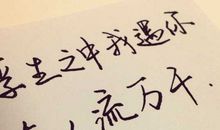 生之中我遇你
流万千.